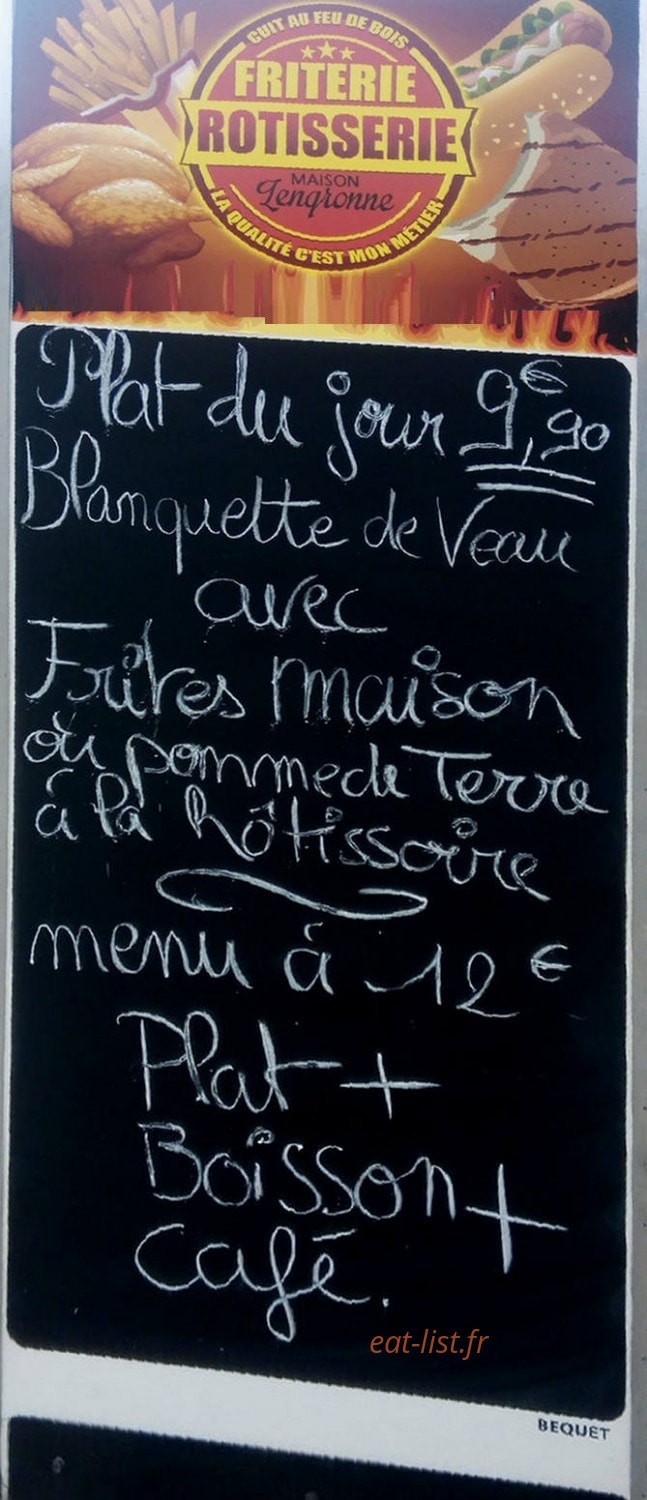 CUIT AU FEU DE BOIS
FRITERIE
ROTISSERIE
MAISON
Lengronne
LA QUALITÉ C'EST MON MÉTIER
Plat du jour 9,€90
Blanquette de Veau
avec
Frites maison
où pomme de Terre
à la Rôtissoire
menu à 12 €
Plat +
Boisson +
café.
eat-list.fr
BEQUET